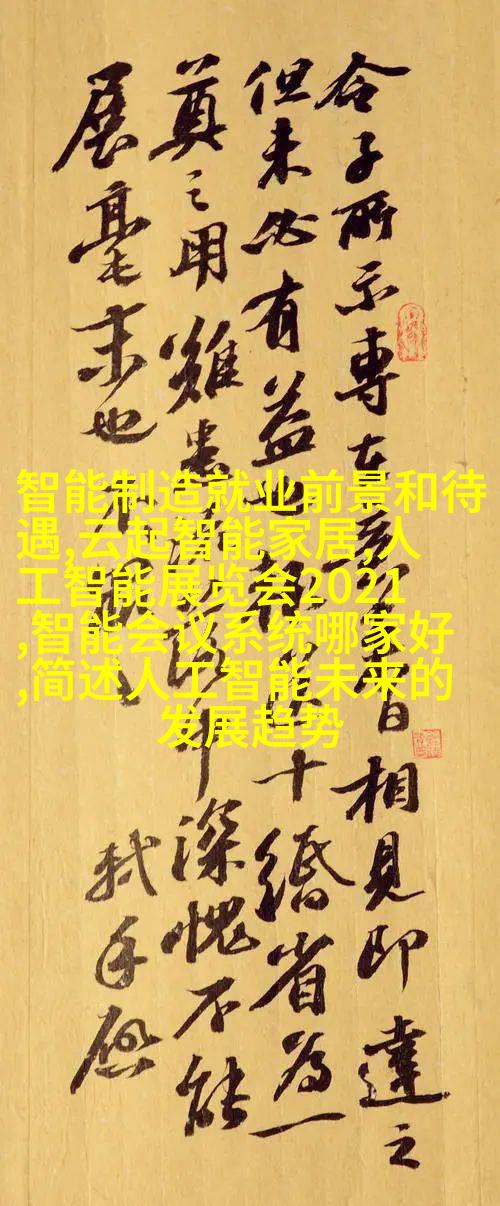 令子所示專在意日相見即達之
但未必有益也十緡省為一
奠之用雖深愧不能
展毫末也不
軾手啟
智能制造就业前景和待
遇,云起智能家居,人
工智能展览会2021
,智能会议系统哪家好
,简述人工智能未来的
发展趋势